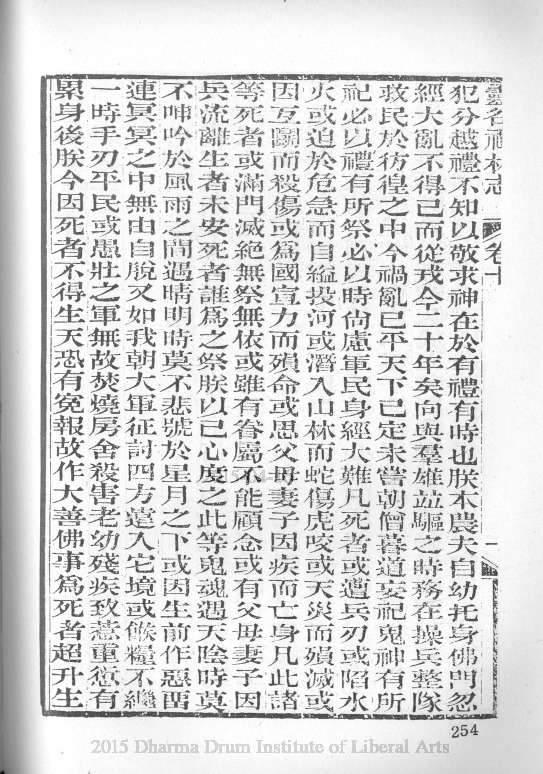 靈谷禪林志 卷十 一
犯分越禮不知以敬求神在於有禮有時也朕本農夫自幼托身佛門忽
經大亂不得已而從戎今二十年矣向與羣雄並驅之時務在操兵整隊
救民於彷徨之中今禍亂已平天下已定未嘗朝僧暮道妄祀鬼神有所
祀必以禮有所祭必以時尚慮軍民身經大難凡死者或遭兵刃或陷水
火或迫於危急而自縊投河或潛入山林而蛇傷虎咬或天災而殞滅或
因互鬭而殺傷或爲國宣力而殞命或思父母妻子因疾而亡身凡此諸
等死者或滿門滅絕無祭無依或雖有眷屬不能顧念或有父母妻子因
兵流離生者未安死者誰爲之祭朕以己心度之此等鬼魂遇天陰時莫
不呻吟於風雨之間遇晴明時莫不悲號於星月之下或因生前作惡罪
連冥冥之中無由自脫又如我朝大軍征討四方遠入它境或餱糧不繼
一時手刃平民或愚壯之軍無故焚燒房舍殺害老幼殘疾致惹重愆有
累身後朕今因死者不得生天恐有冤報故作大善佛事爲死者超升生
254
2015 Dharma Drum Institute of Liberal Arts